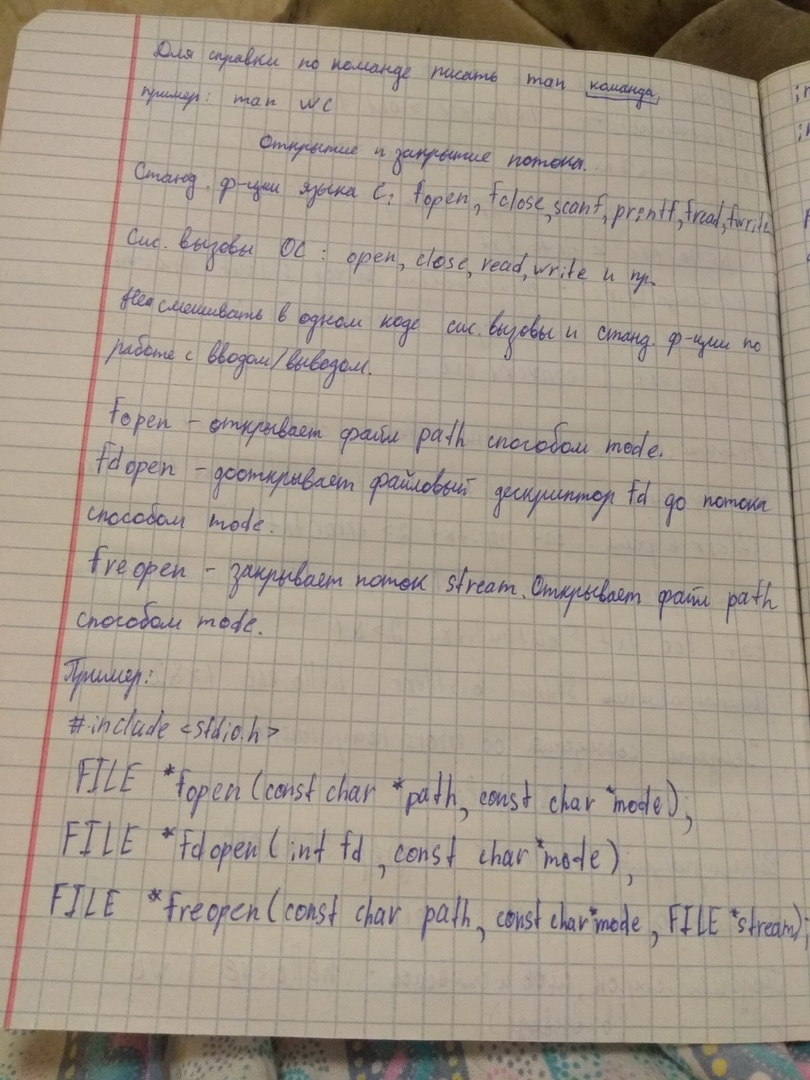 Для справки по команде писать man команда,
пример: man wc
Открытие и закрытие потока.
Станд. ф-ции языка C: fopen, fclose, scanf, printf, fread, fwrite
Сис. вызовы ОС: open, close, read, write и пр.
Не смешивать в одном коде сис. вызовы и станд. ф-ции по
работе с вводом/выводом.
fopen - открывает файл path способом mode.
fdopen - дооткрывает файловый дескриптор fd до потока
способом mode.
freopen - закрывает поток stream. Открывает файл path
способом mode.
Пример:
#include <stdio.h>
FILE *fopen(const char *path, const char *mode);
FILE *fdopen(int fd, const char *mode);
FILE *freopen(const char path, const char *mode, FILE *stream);